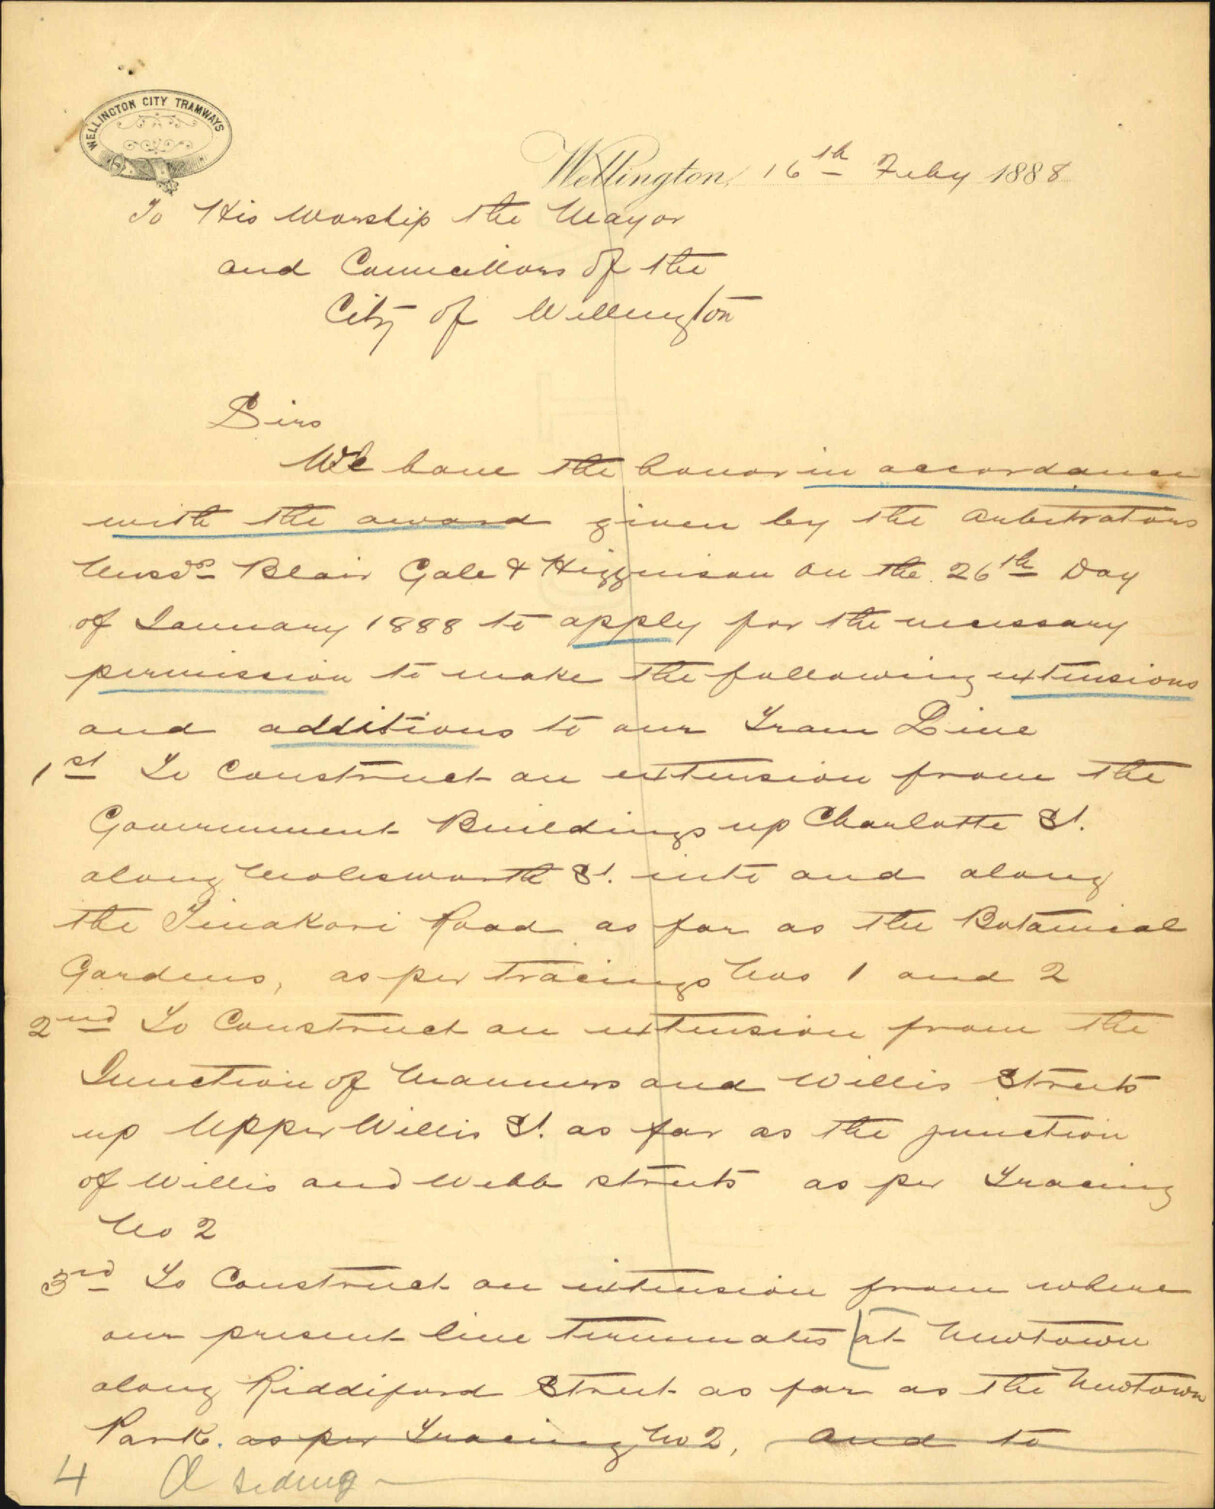 WELLINGTON CITY TRAMWAYS
Wellington, 16th Feby 1888
To His Worship the Mayor
and Councillors of the
City of Wellington
Sirs
We have the honor in accordance
with the award given by the Arbitrators
Messrs Blair Gale & Higginson on the 26th Day
of January 1888 to apply for the necessary
permission to make the following extensions
and additions to our Tram Line
1st To Construct an extension from the
Government Buildings up Charlotte St.
along Molesworth St. into and along
the Tinakori Road as far as the Botanical
Gardens, as per tracings Nos 1 and 2
2nd To Construct an extension from the
Junction of Manners and Willis Streets
up Upper Willis St. as far as the junction
of Willis and Webb streets as per Tracing
No 2
3rd To Construct an extension from where
our present line terminates [at Newtown
along Riddiford Street as far as the Newtown
Park. as per Tracing No 2, and to
4 A siding